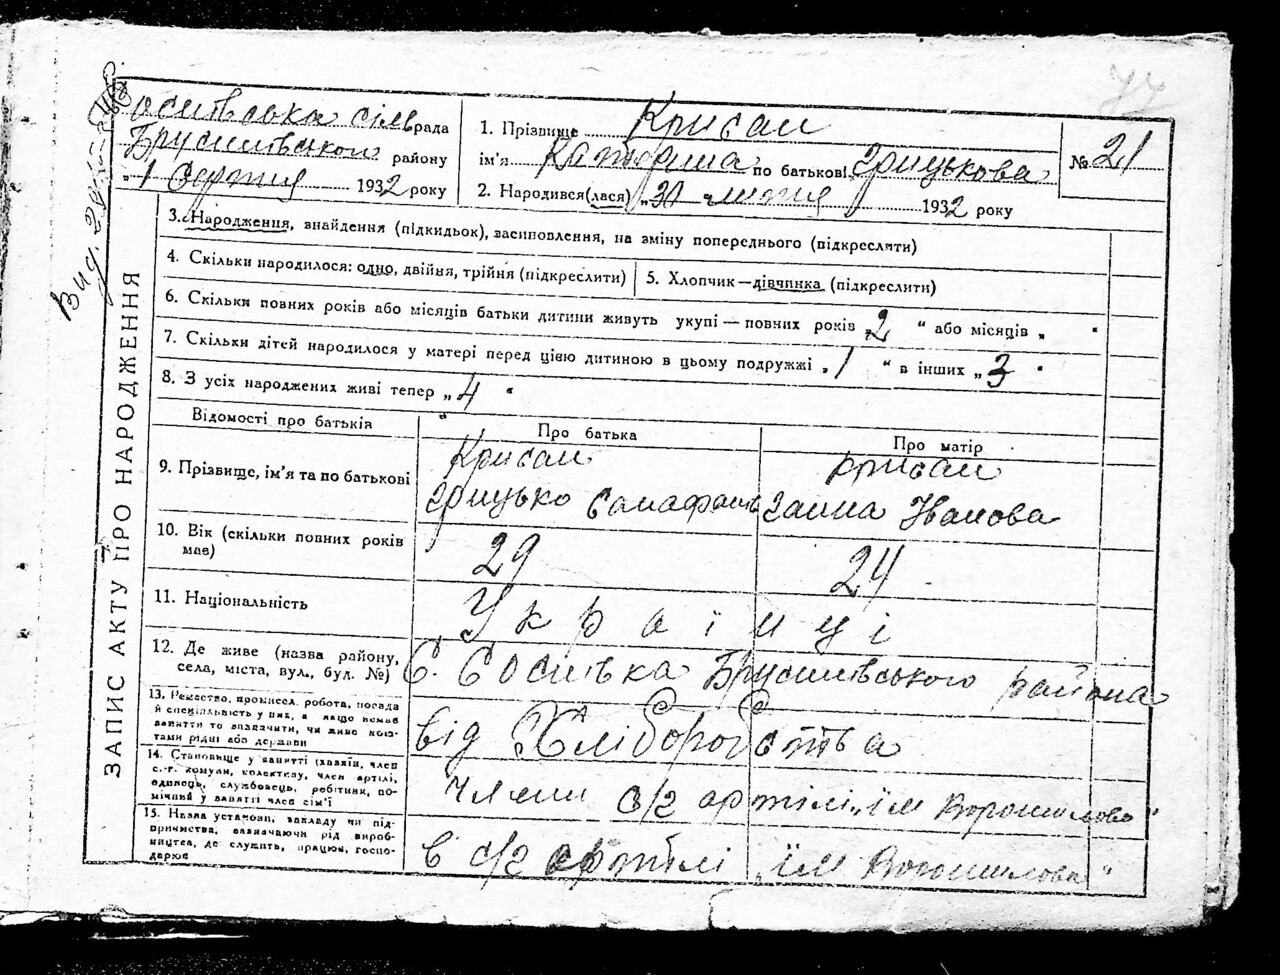 77
Осипівська сільрада
Брусилівського району
„1 Серпня 1932 року
1. Прізвище Крисан
ім'я Катерина по батькові Грицькова
2. Народився(лася) „30 липня 1932 року
№ 21
Вид.
ЗАПИС АКТУ ПРО НАРОДЖЕННЯ
3. Народження, знайдення (підкидьок), засиновлення, на зміну попереднього (підкреслити)
4. Скільки народилося: одно, двійня, трійня (підкреслити)
5. Хлопчик—дівчинка (підкреслити)
6. Скільки повних років або місяців батьки дитини живуть укупі — повних років „2 “ або місяців „ “
7. Скільки дітей народилося у матері перед цією дитиною в цьому подружжі „1 “ в інших „3 “
8. З усіх народжених живі тепер „4 “
Відомості про батьків
Про батька
Про матір
9. Прізвище, ім'я та по батькові
Крисан
Грицько
Крисан
Ганна Іванова
10. Вік (скільки повних років має)
29
24
11. Національність
Українці
12. Де живе (назва району,
села, міста, вул., буд. №)
С. Осипівка Брусилівського района
13. Ремество, промисел, робота, посада
й спеціяльність у них, а якщо немає
заняття то зазначити, чи живе кош-
тами рідні або держави
від Хліборобства
14. Становище у занятті (хазяїн, член
с.-г. комуни, колективу, член артілі,
одинець, службовець, робітник, по-
мічний у занятті член сім'ї
Члени с/г артілі „ім Ворошилова“
15. Назва установи, закладу чи під-
приємства, зазначаючи рід вироб-
ництва, де служить, працює, госпо-
дарює
в с/г артілі „ім Ворошилова“